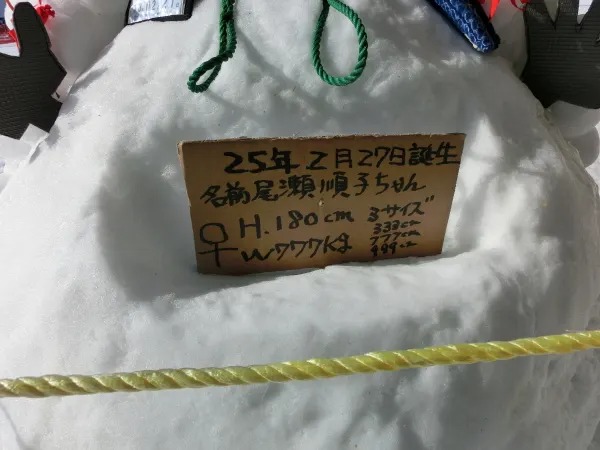 25年2月27日誕生
名前尾瀬順子ちゃん
♀ H.180cm
W777Kg
3サイズ
333cm
777cm
999cm